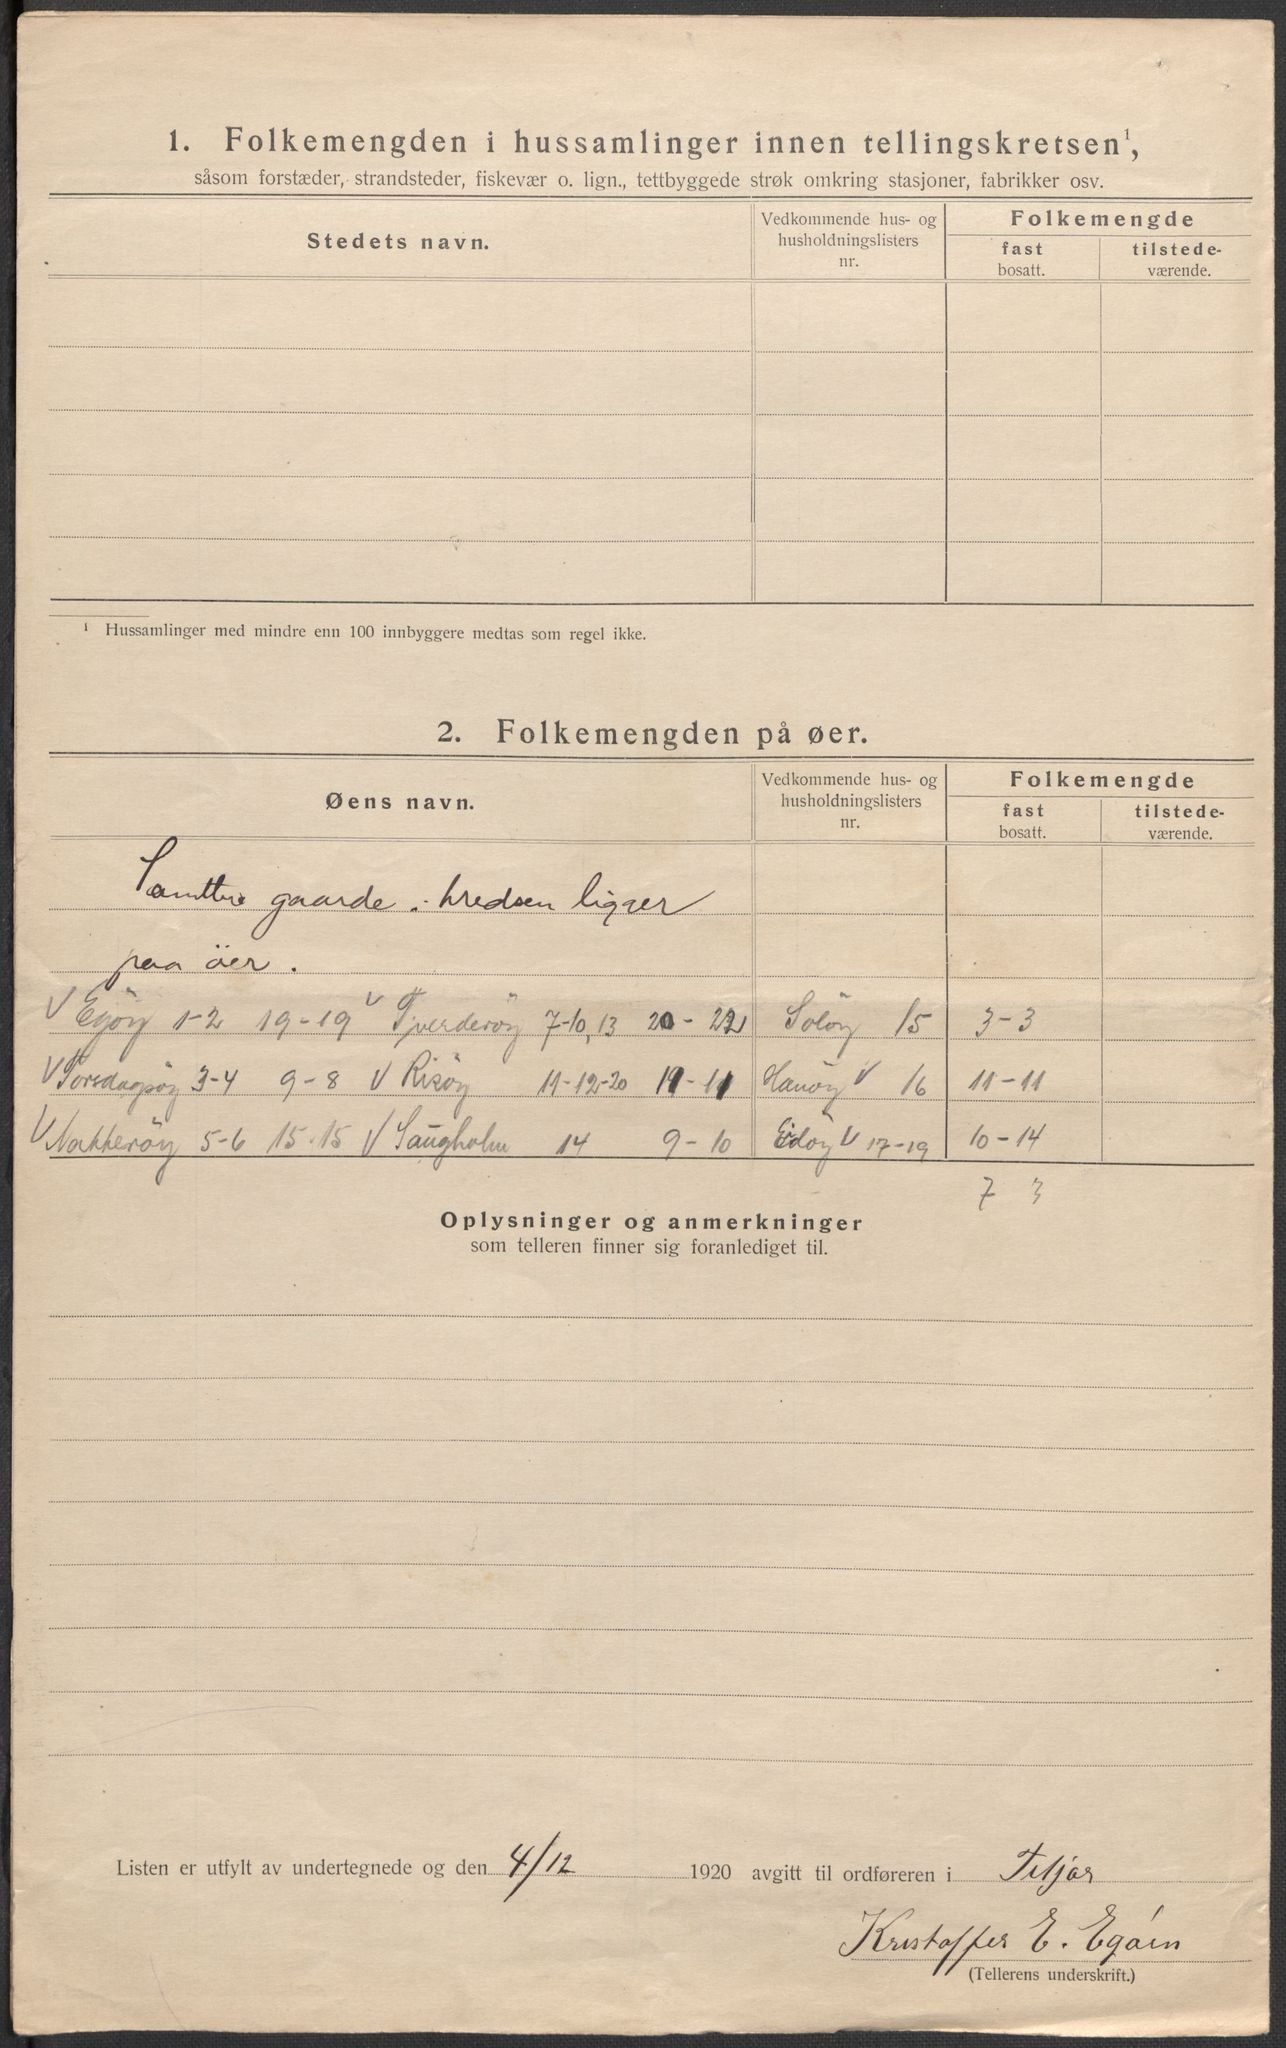 1. Folkemengden i hussamlinger innen tellingskretsen¹,
såsom forstæder, strandsteder, fiskevær o. lign., tettbyggede strøk omkring stasjoner, fabrikker osv.
Stedets navn.
Vedkommende hus- og
husholdningslisters
nr.
Folkemengde
fast
bosatt.
tilstede-
værende.
¹ Hussamlinger med mindre enn 100 innbyggere medtas som regel ikke.
2. Folkemengden på øer.
Øens navn.
Vedkommende hus- og
husholdningslisters
nr.
Folkemengde
fast
bosatt.
tilstede-
værende.
Samtlige gaarde i kredsen ligger
paa öer.
V Egöy 1-2 19-19 V Tverderöy 7-10, 13 20-22 Solöy 15 3-3
V Torsdagsöy 3-4 9-8 V Risöy 11-12-20 11-11 Hanöy V 16 11-11
V Nakkeröy 5-6 15-15 V Saugholm 14 9-10 Eidöy V 17-19 10-14
7 3
Oplysninger og anmerkninger
som telleren finner sig foranlediget til.
Listen er utfylt av undertegnede og den 4/12 1920 avgitt til ordføreren i Fitjar
Kristoffer E. Egöen
(Tellerens underskrift.)